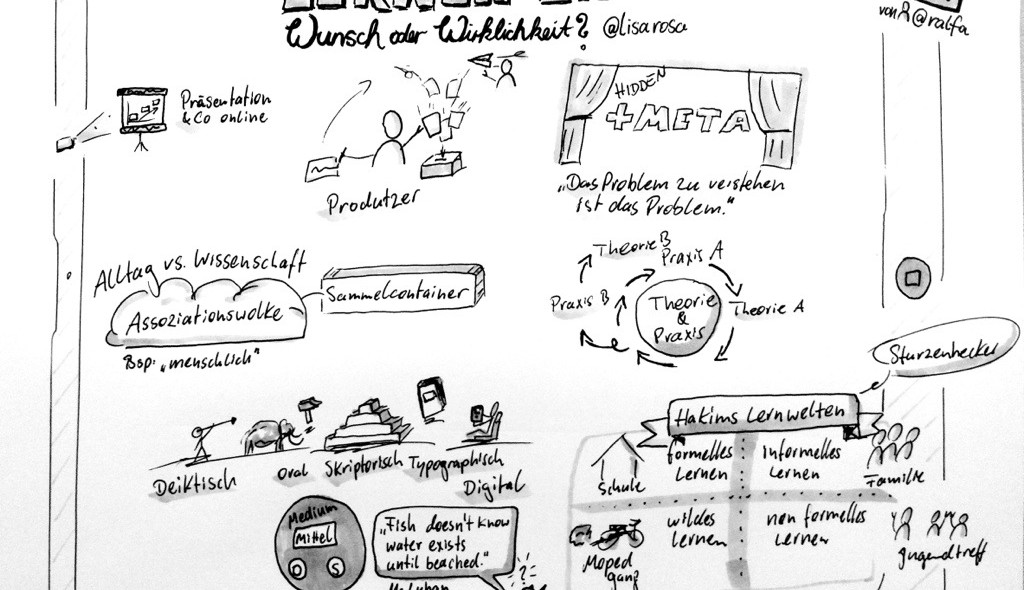 Wunsch oder Wirklichkeit? @lisarosa
von @ralfa
Präsentation
& Co online
Produtzer
HIDDEN
+META
„Das Problem zu verstehen
ist das Problem."
Alltag vs. Wissenschaft
Assoziationswolke
Sammelcontainer
Bsp: „menschlich"
Theorie B
Praxis A
Praxis B
Theorie
&
Praxis
Theorie A
Sturzenhecker
Hakims Lernwelten
Deiktisch
Oral
Skriptorisch
Typographisch
Digital
Schule
formelles
Lernen
informelles
Lernen
Familie
Medium
Mittel
O S
„Fish doesn't know
water exists
until beached."
McLuhan
?
Moped
gang
wildes
Lernen
non formelles
Lernen
Jugendtreff